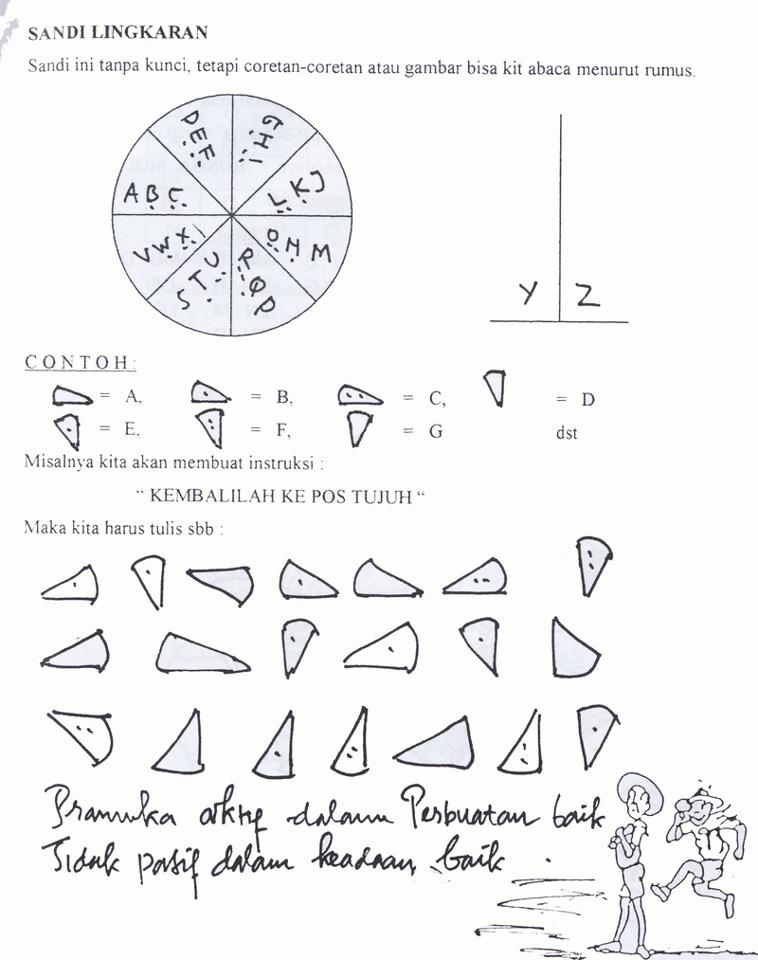 SANDI LINGKARAN
Sandi ini tanpa kunci, tetapi coretan-coretan atau gambar bisa kit abaca menurut rumus.
D E F G H I
A B C L K J
V W X O N M
S T U R Q P
Y Z
CONTOH:
= A, = B, = C, = D
= E, = F, = G dst
Misalnya kita akan membuat instruksi :
“ KEMBALILAH KE POS TUJUH “
Maka kita harus tulis sbb :
Pramuka aktif dalam Perbuatan baik
Tidak pasif dalam keadaan baik .